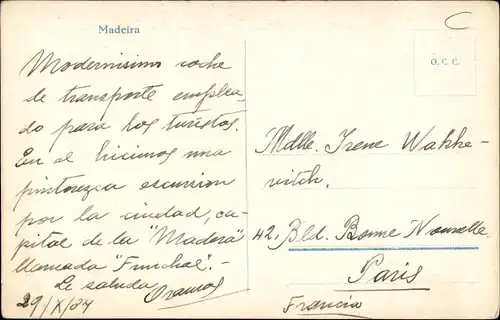 Madeira
C
O.C.C.
Modernisimo coche
de transporte emplea-
do para los turistos.
En el hicimos una
pintorezca escursion
por la ciudad, ca-
pital de la "Madera"
llamada "Funchal".-
Le saluda
29/X/34
Mdlle. Irene Wakhe-
vitch.
42, Bld. Bonne Nouvelle
Paris
Francia